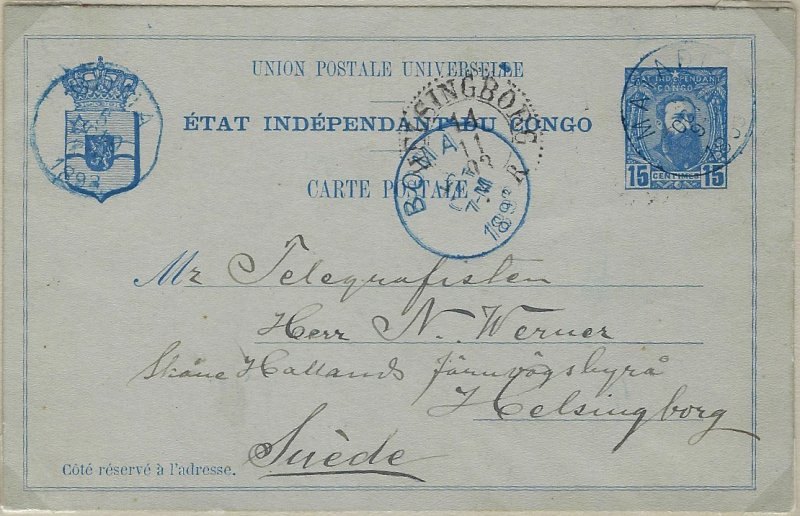 UNION POSTALE UNIVERSELLE
ÉTAT INDÉPENDANT DU CONGO
CARTE POSTALE
ÉTAT INDÉPENDANT
DU CONGO
15 CENTIMES 15
MATADI
BOMA
1893
BOMA
7-M
1893
HELSINGBORG
14
11
93
Mr Telegrafisten
Herr N. Werner
Skåne Hallands Järnvägsbyrå
Helsingborg
Suède
Côté réservé à l'adresse.